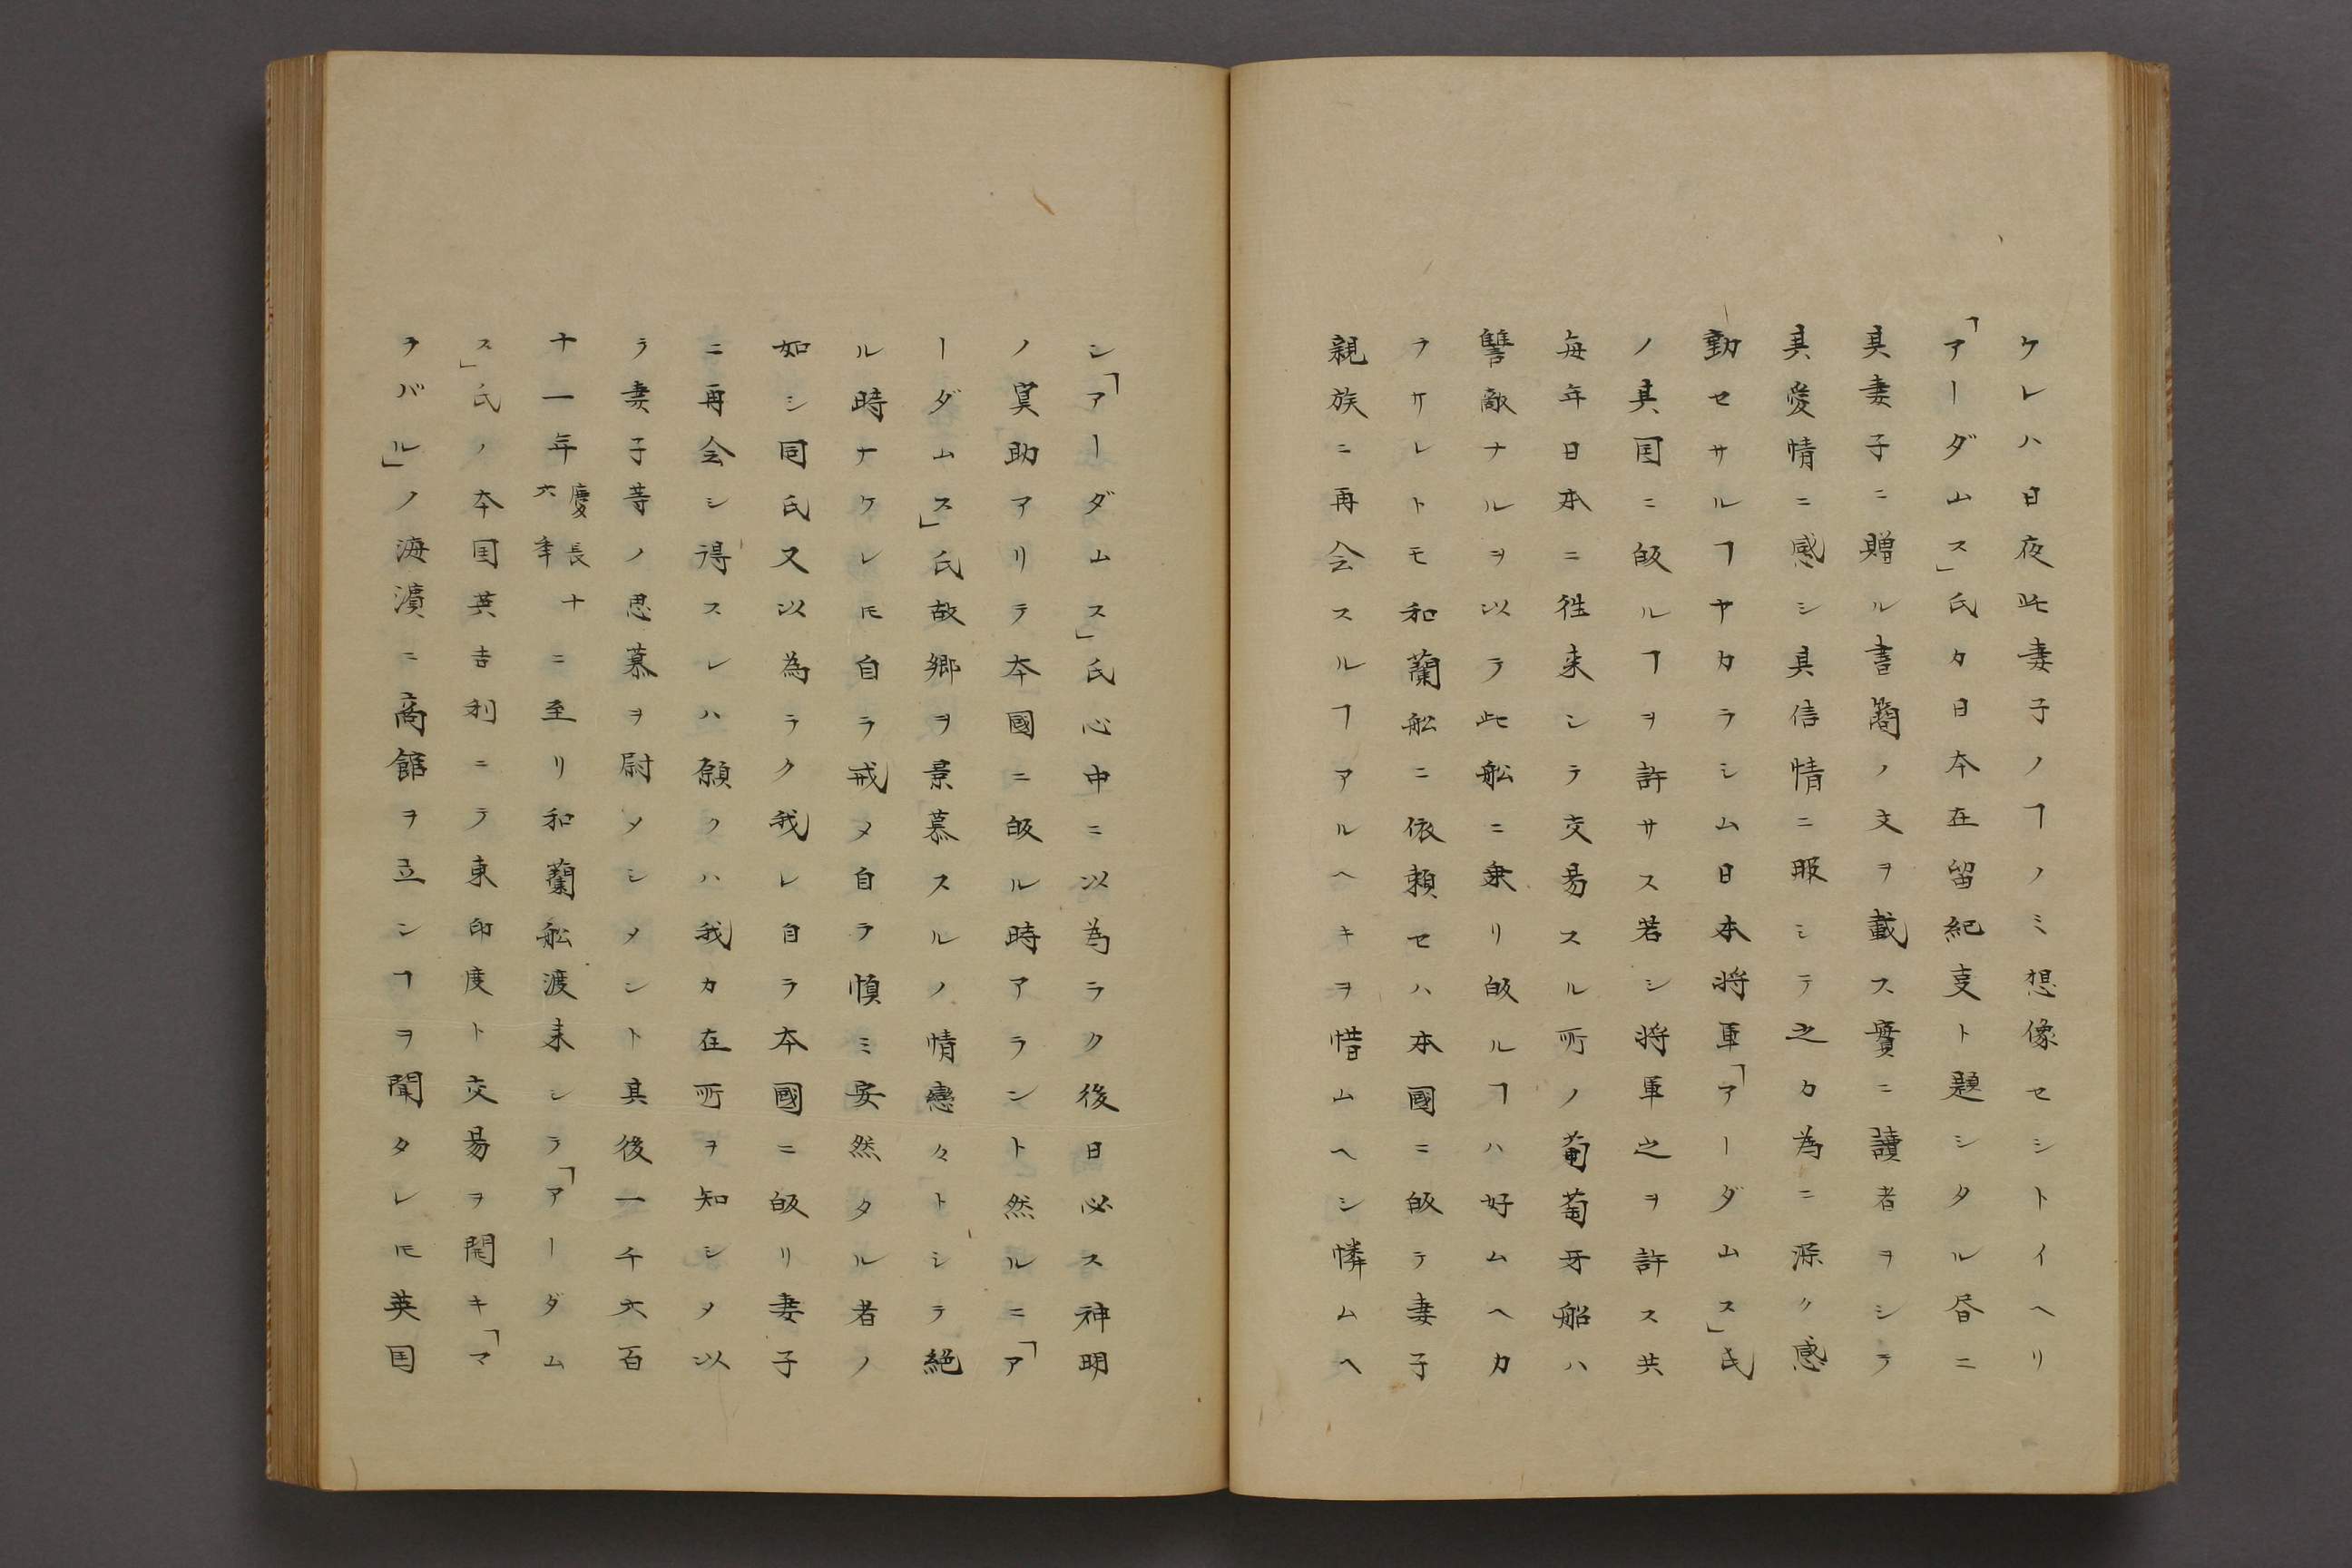 ケレハ日夜此妻子ノヿノミ想像セシトイヘリ
「アーダムス」氏カ日本在留紀叓ト題シタル昏ニ
其妻子ニ贈ル書簡ノ文ヲ載ス實ニ讀者ヲシテ
其愛情ニ感シ其信情ニ服シテ之カ為ニ深ク感
動セサルヿヤカラシム日本将軍「アーダムス」氏
ノ其国ニ皈ルヿヲ許サス若シ将軍之ヲ許ス共
毎年日本ニ徃来シテ交易スル所ノ葡萄牙船ハ
讐敵ナルヲ以テ此舩ニ乗リ皈ルヿハ好ムヘカ
ラケレトモ和蘭舩ニ依頼セハ本國ニ皈テ妻子
親族ニ再会スルヿアルヘキヲ惜ムヘシ憐ムヘ
シ「アーダムス」氏心中ニ以為ラク後日必ス神明
ノ冥助アリテ本國ニ皈ル時アラント然ルニ「ア
ーダムス」氏故郷ヲ景慕スルノ情戀々トシテ絶
ル時ナケレ𪜈自ラ戒メ自ラ慎ミ安然タル者ノ
如シ同氏又以為ラク我レ自ラ本國ニ皈リ妻子
ニ再会シ得スレハ願クハ我カ在所ヲ知シメ以
テ妻子等ノ思慕ヲ尉メシメント其後一千六百
十一年慶長十六年ニ至リ和蘭舩渡来シテ「アーダム
ス」氏ノ本国英吉利ニテ東印度ト交昜ヲ開キ「マ
ラバル」ノ海濱ニ商館ヲ立ンヿヲ聞タレ𪜈英国